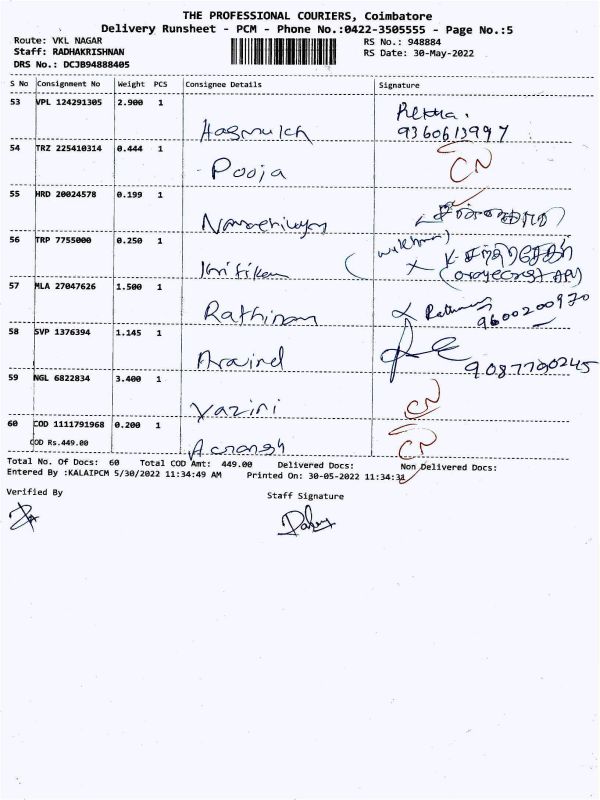 THE PROFESSIONAL COURIERS, Coimbatore
Delivery Runsheet - PCM - Phone No.:0422-3505555 - Page No.:5
Route: VKL NAGAR
RS No.: 948884
Staff: RADHAKRISHNAN
RS Date: 30-May-2022
DRS No.: DCJB94888405
S No Consignment No Weight PCS Consignee Details Signature
53 VPL 124291305 2.900 1
Rekha.
Hasmukh 9360613997
54 TRZ 225410314 0.444 1
Pooja CN
55 HRD 20024578 0.199 1
56 TRP 7755000 0.250 1
57 MLA 27047626 1.500 1
Rathinam
9600200970
58 SVP 1376394 1.145 1
Aravind
9087790245
59 NGL 6822834 3.400 1
Yazini CN
60 COD 1111791968 0.200 1
COD Rs.449.00
CN
Total No. Of Docs: 60 Total COD Amt: 449.00 Delivered Docs: Non Delivered Docs:
Entered By :KALAIPCM 5/30/2022 11:34:49 AM Printed On: 30-05-2022 11:34:31
Verified By
Staff Signature